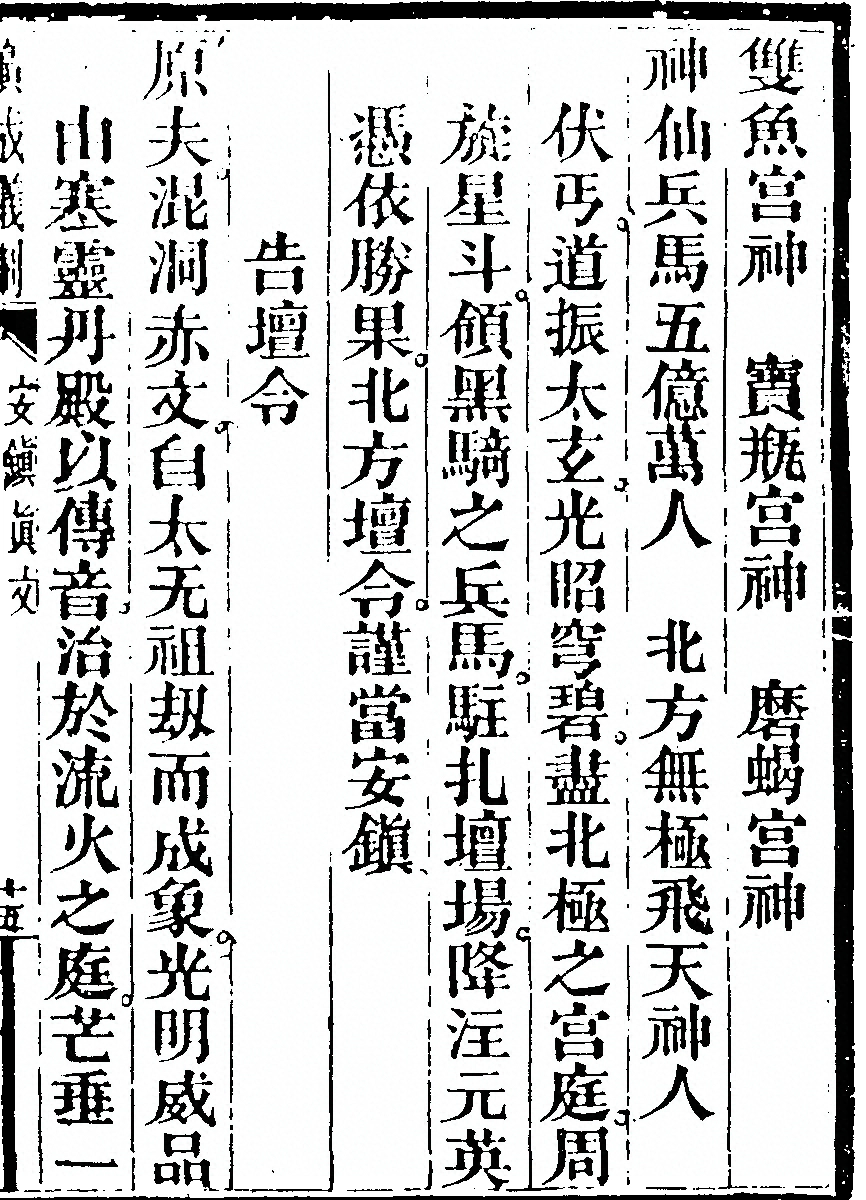 雙魚宮神　寶瓶宮神　磨蝎宮神
神仙兵馬五億萬人　北方無極飛天神人
伏丐道振太玄。光昭穹碧。盡北極之宮庭。周
旋星斗。領黑騎之兵馬。駐扎壇場。降注元英
憑依勝果。北方壇令。謹當安鎮
告壇令
原夫混洞赤文。自太无祖刼而成象。光明威品
由塞靈丹殿以傳音。治於流火之庭。芒垂一
安鎮眞文
十五